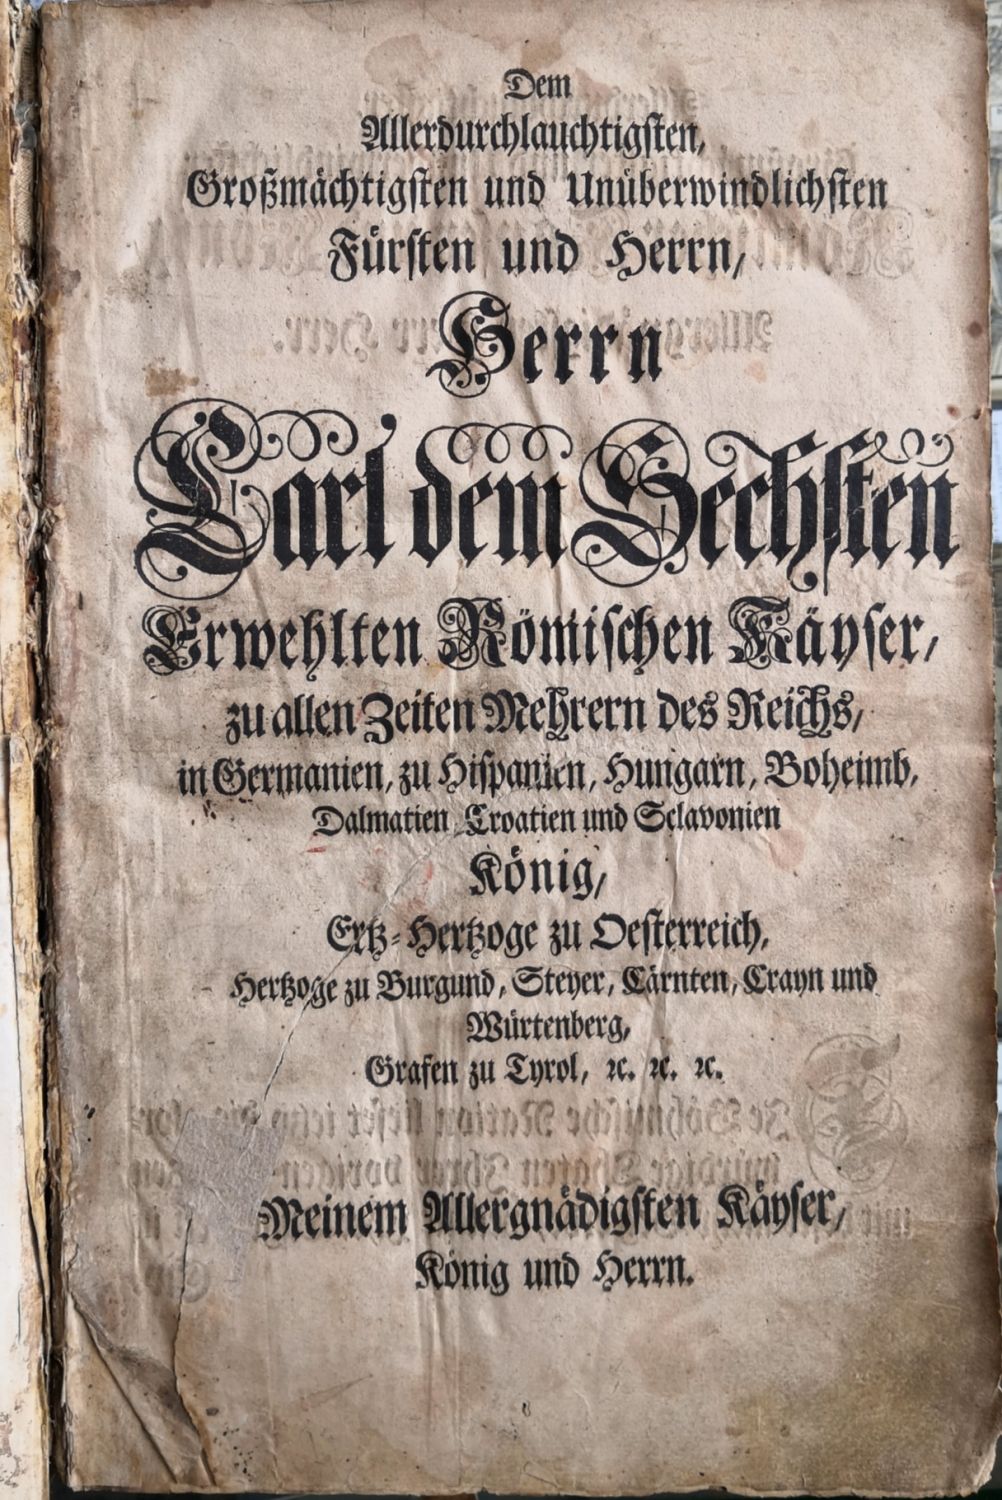 Dem
Allerdurchlauchtigsten,
Großmächtigsten und Unüberwindlichsten
Fürsten und Herrn,
Herrn
Carl dem Sechsten
Erwehlten Römischen Käyser,
zu allen Zeiten Mehrern des Reichs,
in Germanien, zu Hispanien, Hungarn, Boheimb,
Dalmatien Croatien und Sclavonien
König,
Ertz-Hertzoge zu Oesterreich,
Hertzoge zu Burgund, Steyer, Cärnten, Crayn und
Würtenberg,
Grafen zu Tyrol, ꝛc. ꝛc. ꝛc.
Meinem Allergnädigsten Käyser,
König und Herrn.